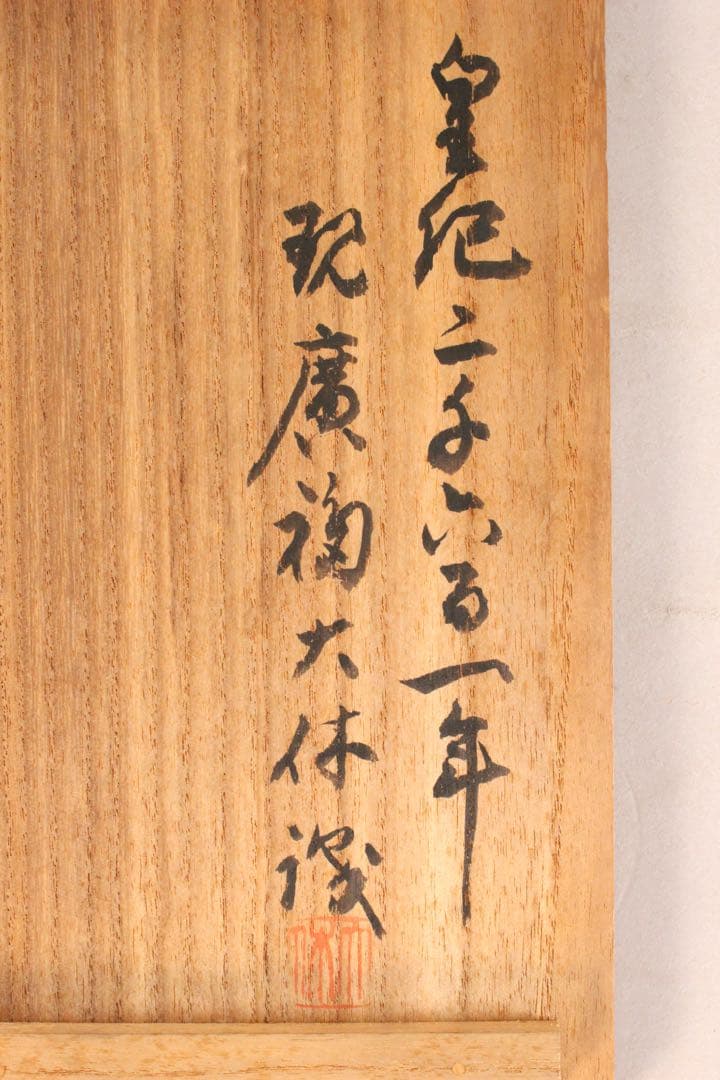 皇紀二千六百一年
現廣福大休識
大休